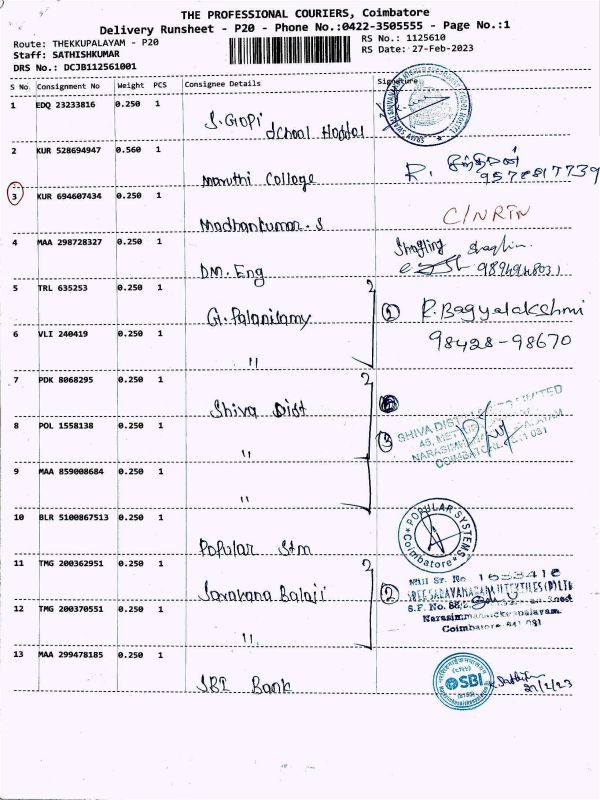 THE PROFESSIONAL COURIERS, Coimbatore
Delivery Runsheet - P20 - Phone No.:0422-3505555 - Page No.:1
Route: THEKKUPALAYAM - P20
Staff: SATHISHKUMAR
DRS No.: DCJB112561001
RS No.: 1125610
RS Date: 27-Feb-2023
S No. Consignment No Weight PCS Consignee Details Signature
1 EDQ 23233816 0.250 1
S. Gopi
School Hostel
2 KUR 528694947 0.560 1
Maruthi College
R.
9578817739
3 KUR 694607434 0.250 1
Madhankumar. S
C/NRTN
4 MAA 298728327 0.250 1
DM. Eng
9894948031
5 TRL 635253 0.250 1
G. Palanisamy
2
R. Bagyalakshmi
6 VLI 240419 0.250 1
"
98428-98670
7 PDK 8068295 0.250 1
Shiva Dist
8 POL 1558138 0.250 1
"
3
SHIVA DIST LIMITED
45, METTUPALAYAM
COIMBATORE
9 MAA 859008684 0.250 1
"
10 BLR 5100867513 0.250 1
Popular Stm
POPULAR SYSTEMS
Coimbatore
11 TMG 200362951 0.250 1
Saravana Balaji
2
12 TMG 200370551 0.250 1
"
S.F. No.
Coimbatore- 641 031
13 MAA 299478185 0.250 1
SBI Bank
SBI
27/2/23